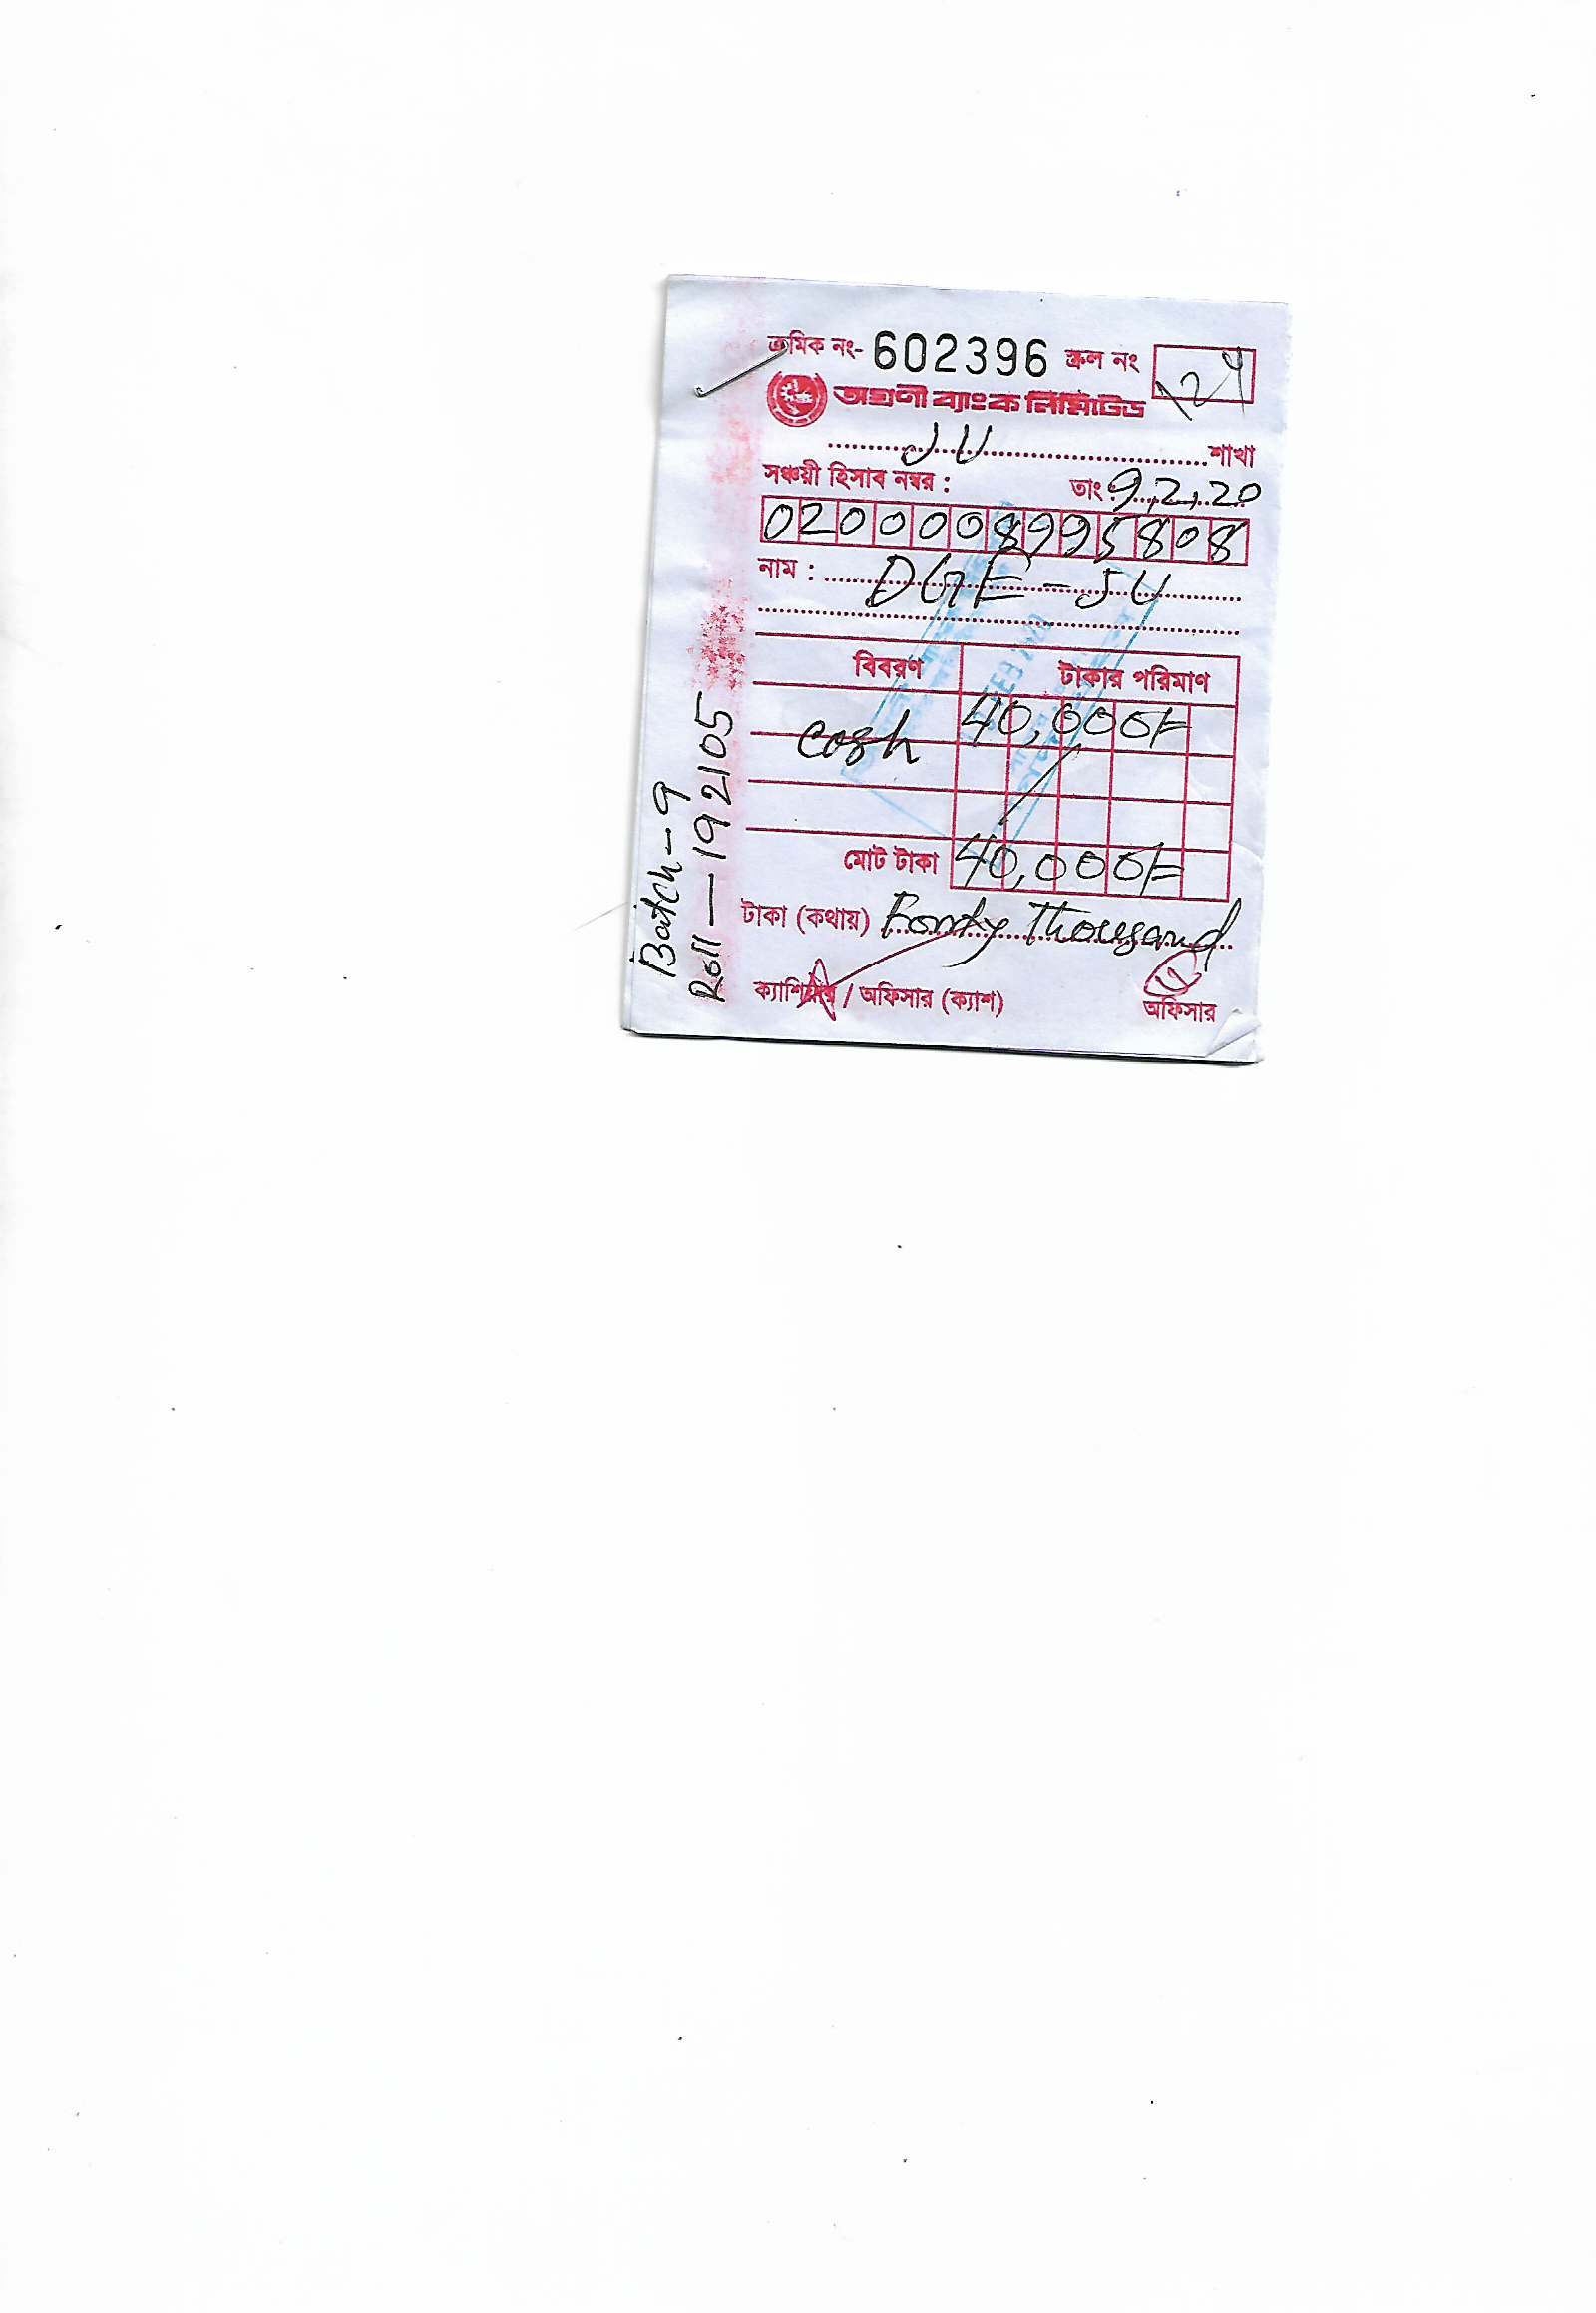 ক্রমিক নং- 602396 স্ক্রল নং
অগ্রণী ব্যাংক লিমিটেড
JU শাখা
সঞ্চয়ী হিসাব নম্বর : তাং 9.2.20
0200008995808
নাম : DGE-JU
বিবরণ টাকার পরিমাণ
cash 40,000/=
মোট টাকা 40,000/=
টাকা (কথায়) Fourty Thousand
ক্যাশিয়ার / অফিসার (ক্যাশ) অফিসার
Batch-9
Roll-192105